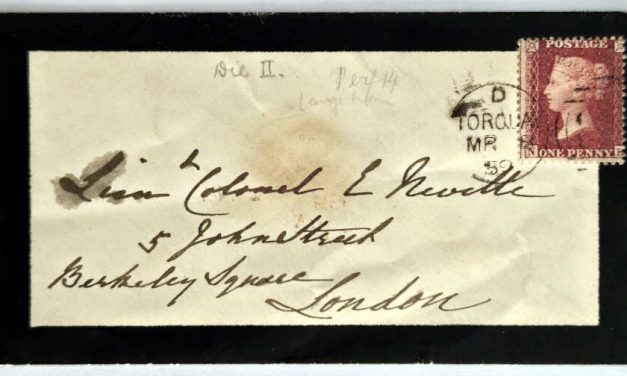 Die II.
Perf 14
POSTAGE
D
TORQUAY
MR
59
N
ONE PENNY
Lieut Colonel E Neville
5 John Street
Berkeley Square
London